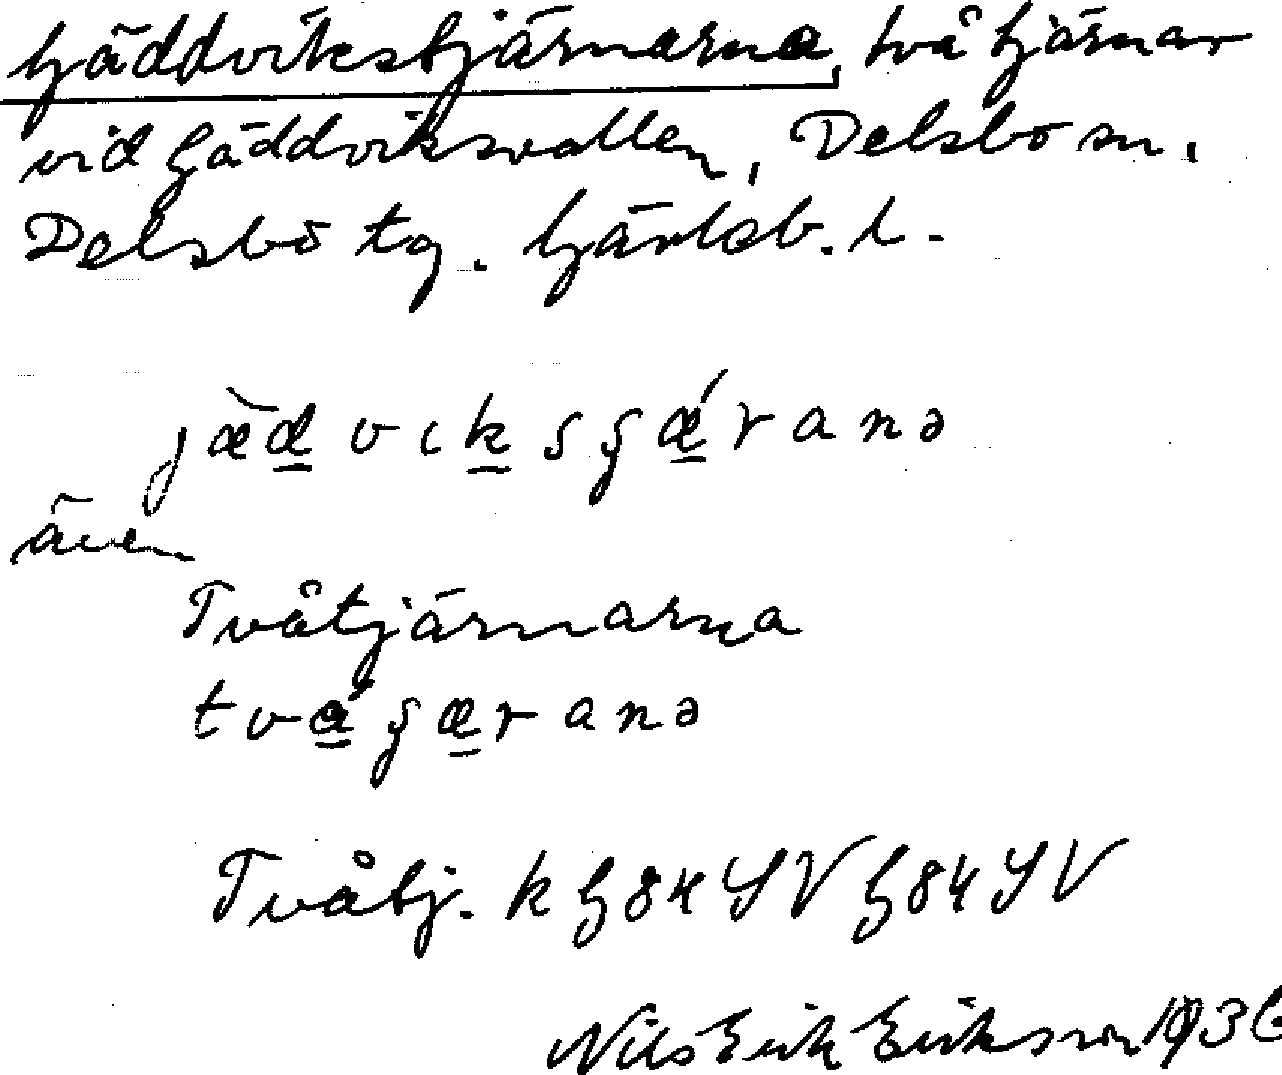 Gäddvikstjärnarna, två tjärnar
vid Gäddviksvallen, Delsbo sn.
Delsbo tg. Gävleb. l.
även
Tvåtjärnarna
Tvåtj. k G84 SV G84 SV
Nils Erik Eriksson 1936